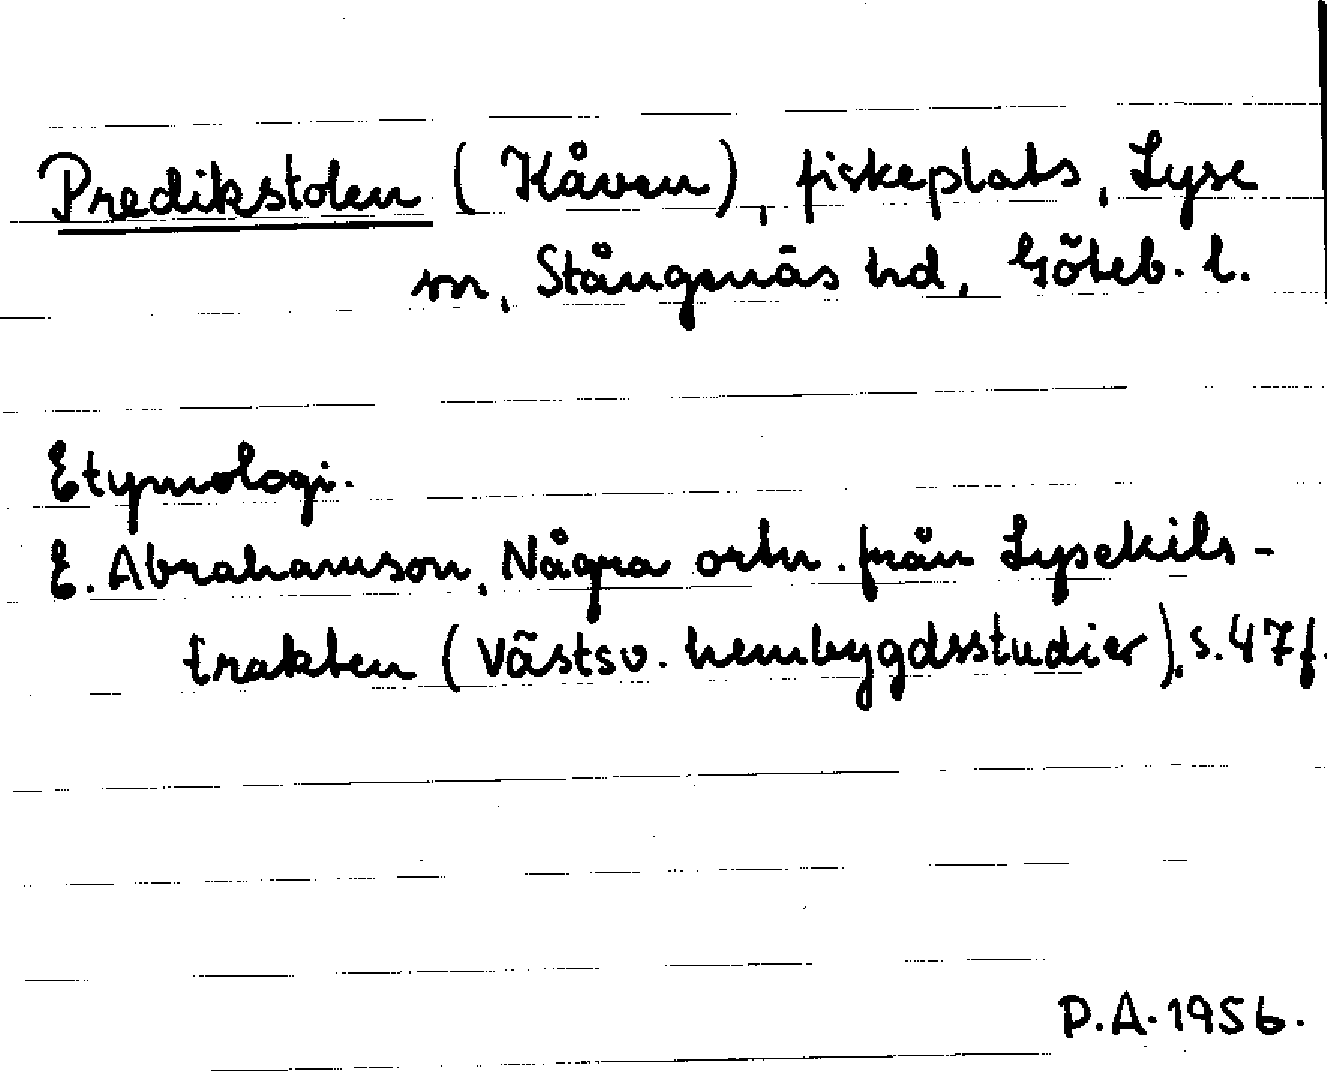 Predikstolen (Kåven), fiskeplats, Lyse
sn, Stångenäs hd, Göteb. l.
Etymologi.
E. Abrahamson, Några ortn. från Lysekils-
trakten (Västsv. hembygdsstudier), s. 47 f.
D.A. 1956.